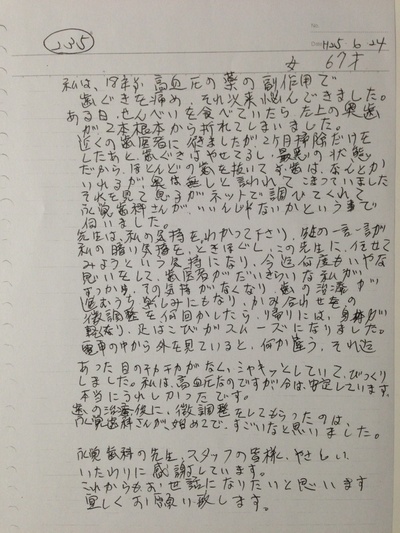 235
H25 6 24
女 67才
私は、18年から高血圧の薬の副作用で
歯ぐきを痛め、それ以来悩んできました。
ある日、せんべいを食べていたら、左上の奥歯
が2本根本から折れてしまいました。
近くの歯医者に行きましたが2ヶ月掃除だけを
したあと、歯ぐきはやせてるし、最悪の状態
だから、ほとんどの歯を抜いて 歯は、なんとか
いれるが、奥は無しと言われて こまっていました
それを見て息子がネットで調ひてくれて
歯科さんが、いいんじゃないかという事で
伺いました。
先生は、私の気持をわかって下さり、一言一言が
私の暗い気持を、ときほぐし、この先生に、任せて
みようという気持になり、今迄何度もいやな
思いをして、歯医者がだいきらいな私が
すっかり、その気持がなくなり、歯の治療が
進むうち楽しみにもなり、かみ合わせの
微調整を何回かしたら、帰りには、身体が
軽くなり、足はこびがスムーズになりました。
電車の中から外を見ていると、何か違う、それ迄
あった目のチカチカがなく、シャキッとしていて、びっくり
しました。私は、高血圧なのですが今は、安定しています。
本当にうれしかったです。
歯の治療後に、微調整をしてもらったのは、
歯科さんが、始めてで、すごいなと思いました。
歯科の先生、スタッフの皆様、やさしい
いたわりに感謝しています。
これからもお世話になりたいと思います
宜しくお願い致します。